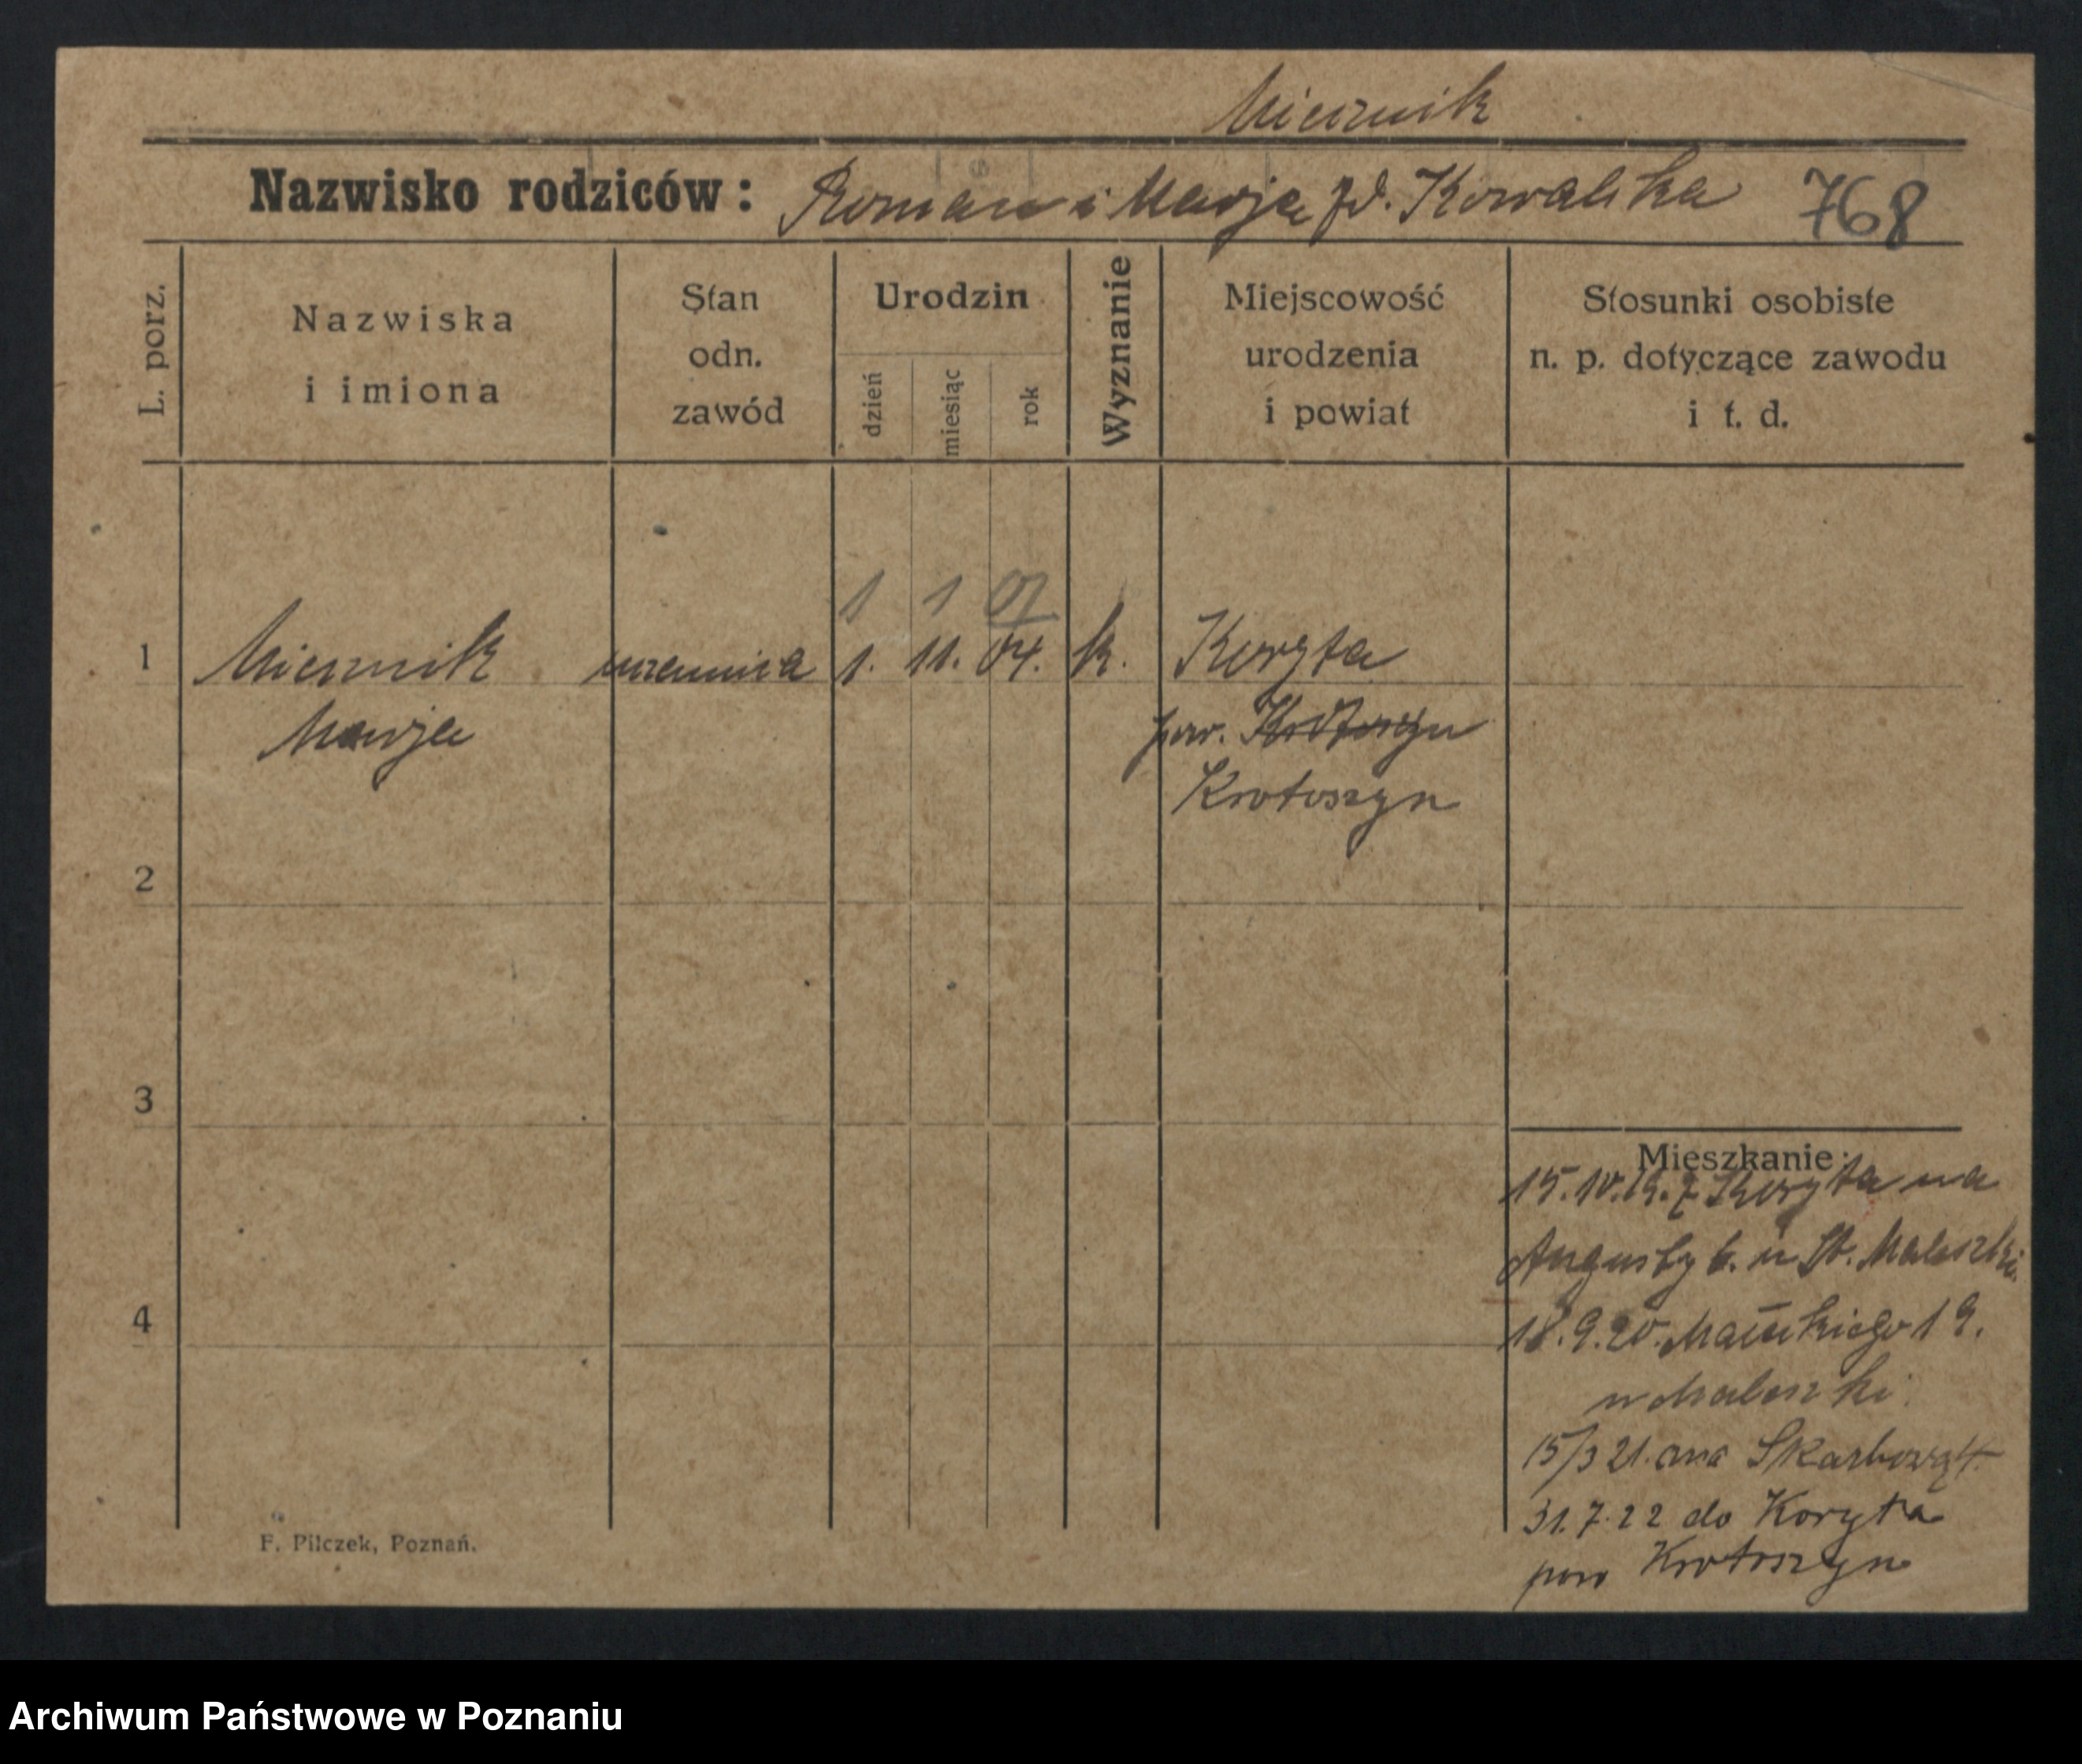 Miernik
Nazwisko rodziców: Roman i Marja zd. Kowalska 768
L. porz.
Nazwiska
i imiona
Stan
odn.
zawód
Urodzin
dzień
miesiąc
rok
Wyznanie
Miejscowość
urodzenia
i powiat
Stosunki osobiste
n. p. dotyczące zawodu
i t. d.
1 1 07
1 Miernik uczennica 1. 11. 04. k. Koryta
Marja pow. Krotoszyn
Krotoszyn
2
3
4
Mieszkanie:
15.10.19. z Koryta na
Augusty b. u St. Maleszki
18.9.20. Małeckiego 19.
u Maleszki
15/3 21. na Skarbową 4
31.7.22 do Koryta
pow Krotoszyn
F. Pilczek, Poznań.
Archiwum Państwowe w Poznaniu